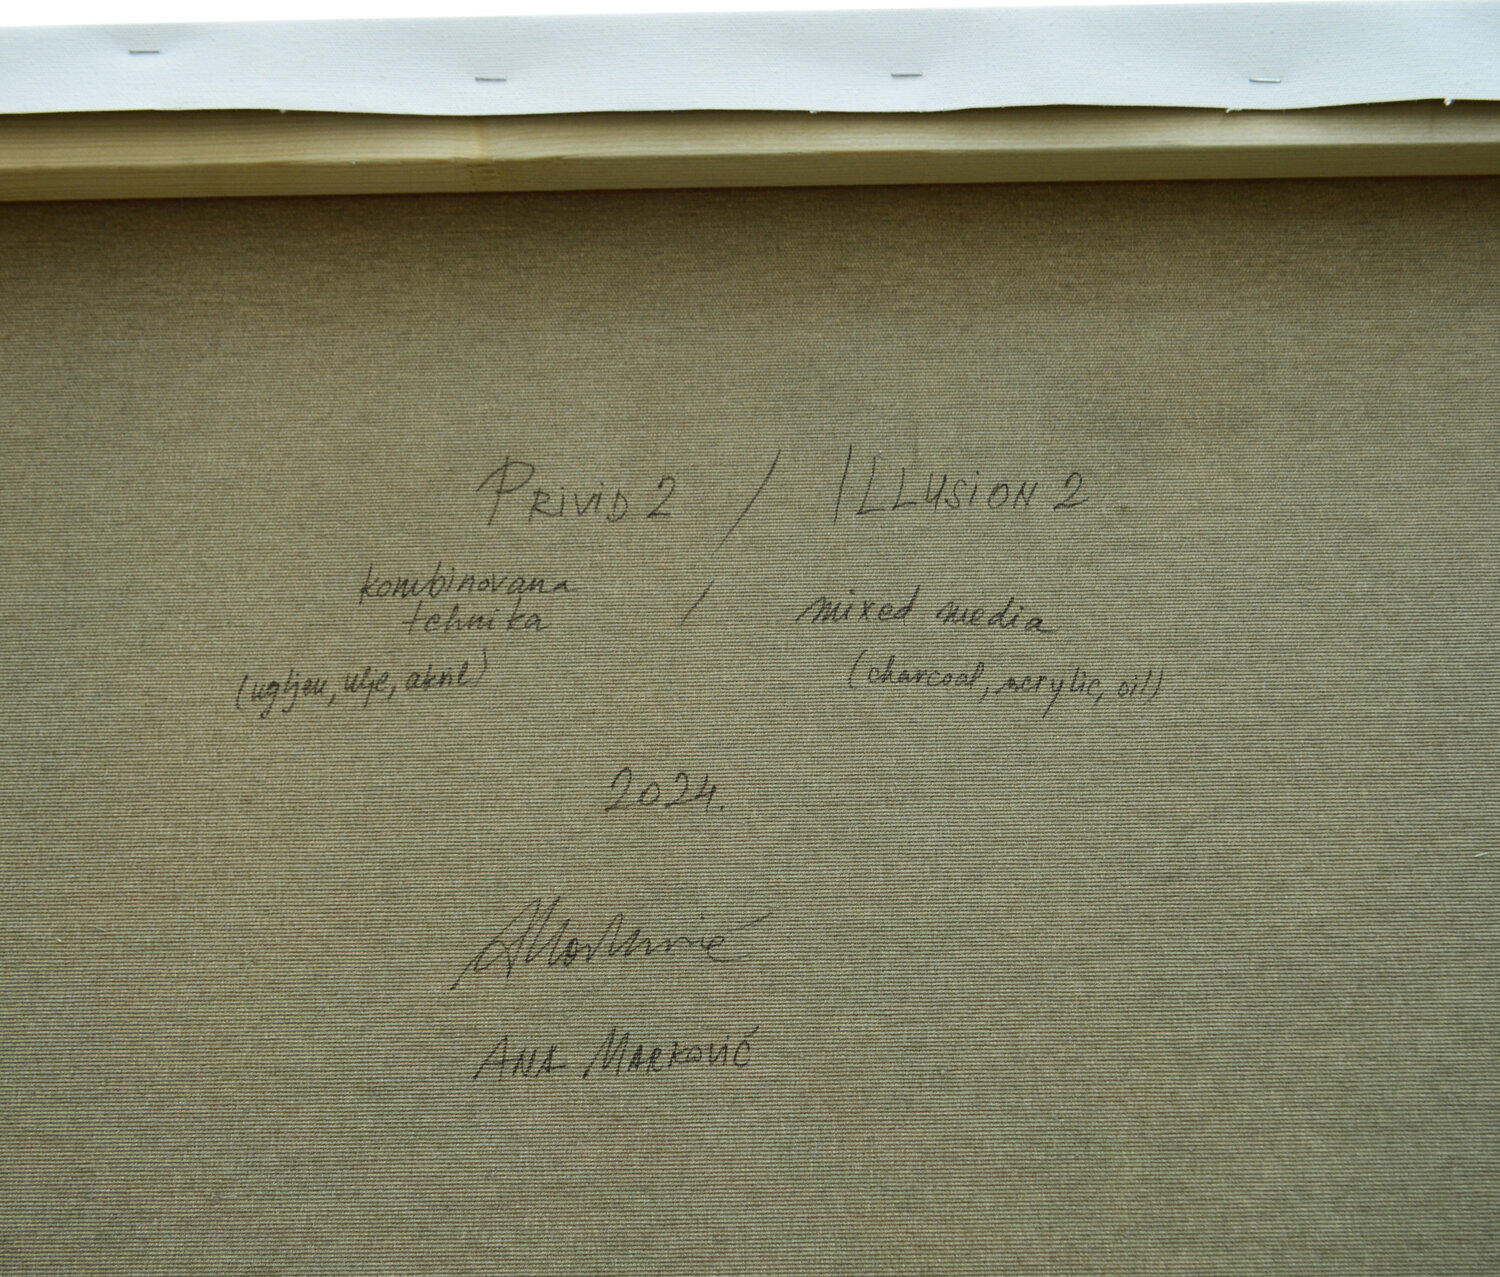 PRIVID 2 / ILLUSION 2
kombinovana
tehnika / mixed media
(ugljen, ulje, akril) (charcoal, acrylic, oil)
2024.
AMarković
ANA MARKOVIĆ